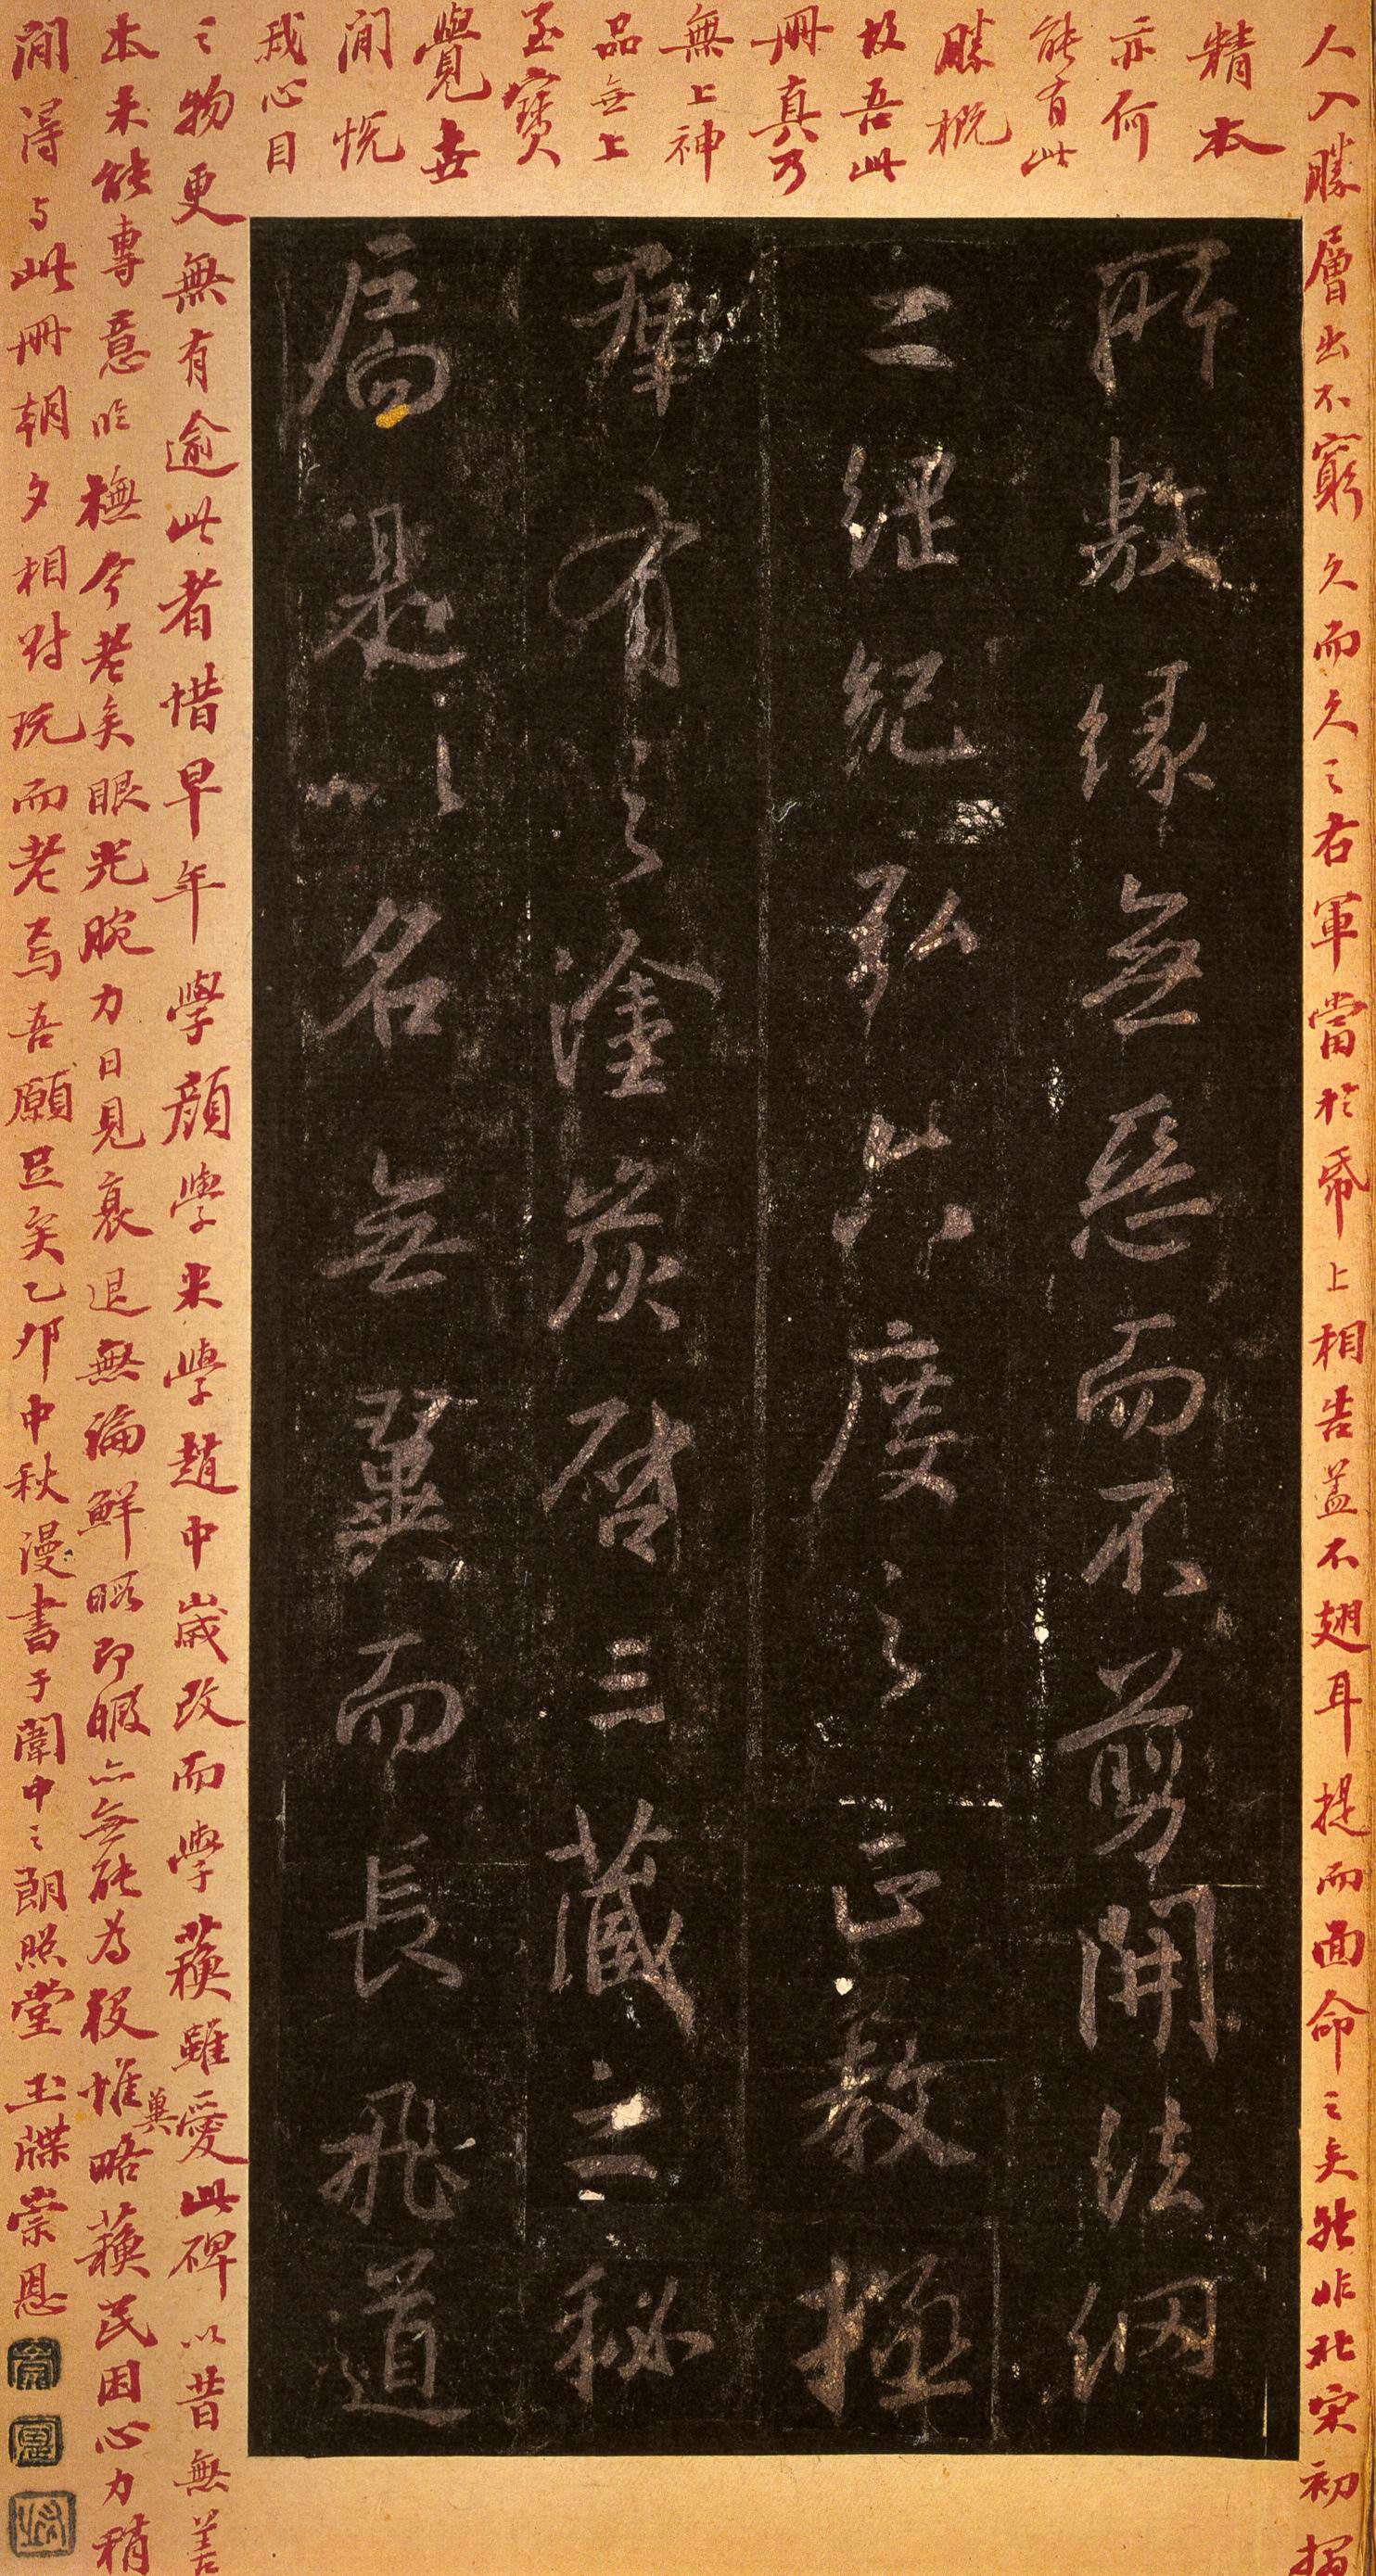 人入勝層出不窮久而久之右軍當於帋上相告盖不翅耳提而面命之矣然非北宋初搨
精本
亦何
能有此
勝概
故吾此
冊真乃
無上神
品無上
至寶
覺世
間悦
我心目
之物更無有逾此者惜早年學顔學米學趙中歲改而學蘓雖愛此碑以昔無善
本未能專意臨橅今老矣眼光腕力日見衰退無論鮮暇即暇亦無能為役惟冀略蘓民困心力稍
閒得与此冊朝夕相對玩而老焉吾願足矣乙卯中秋漫書于闈中之朗照堂玉牒崇恩
所敷緣無惡而不剪開法網
之綱紀弘六度之正教拯
群有之塗炭啓三藏之秘
扃是以名無翼而長飛道